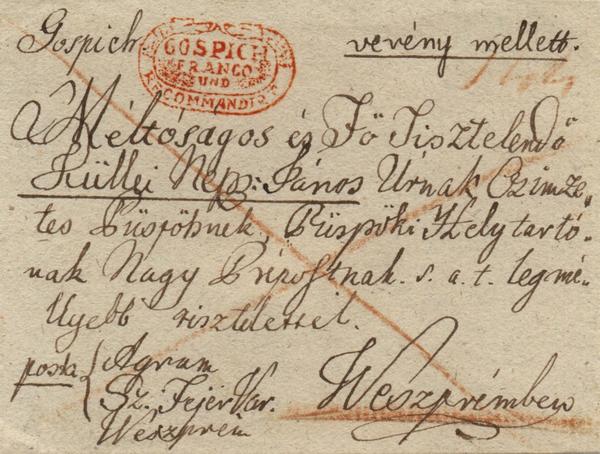 Gospich
GOSPICH
FRANCO
UND
RECOMMANDIRT
verény mellett.
Méltóságos és Fő Tisztelendő
Küllei Nep: János Úrnak Czimze„
tes Püspöknek, Püspöki Helytartó„
nak Nagy Prépostnak. s. a. t. legmé„
llyebb tisztelettel.
posta Agram
Sz: Fejér Var.
Weszprem
Weszprémben